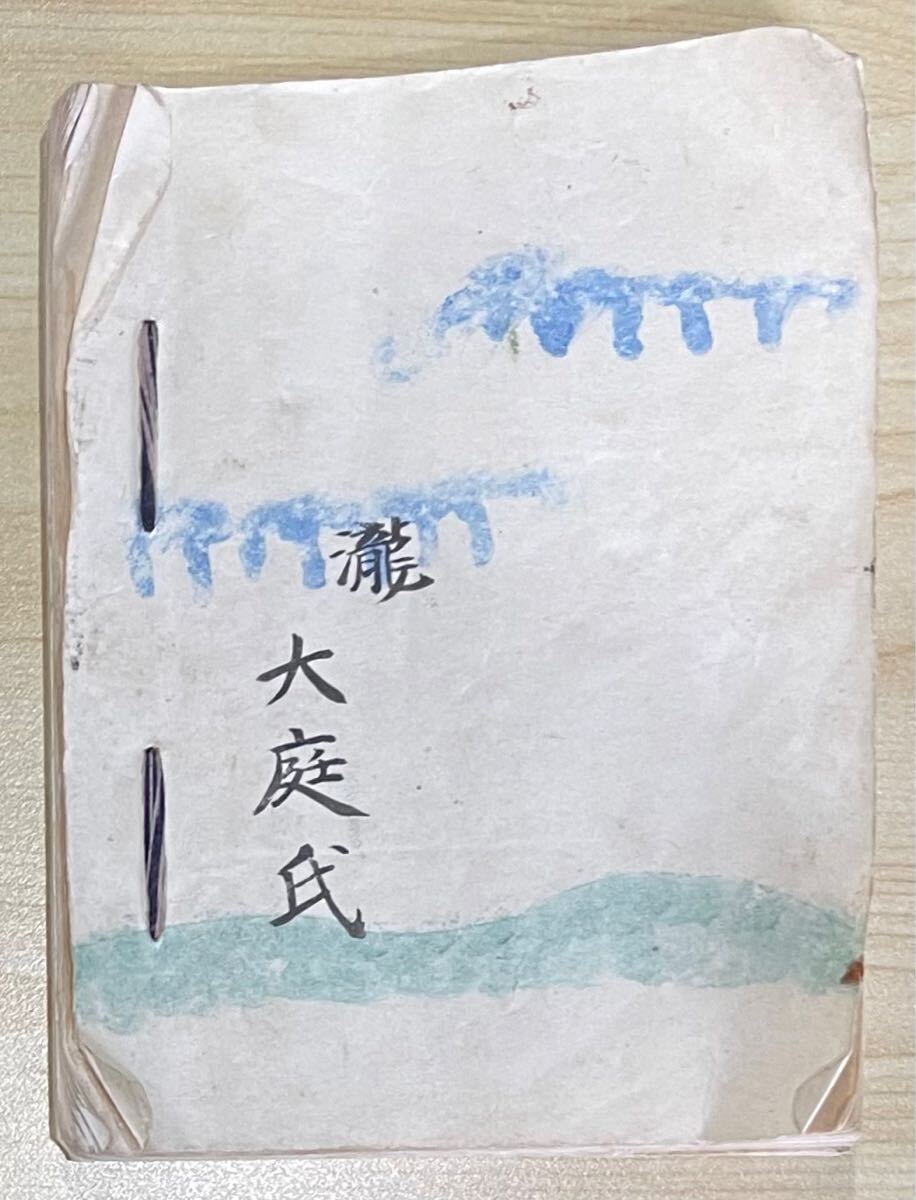 瀧
大庭氏